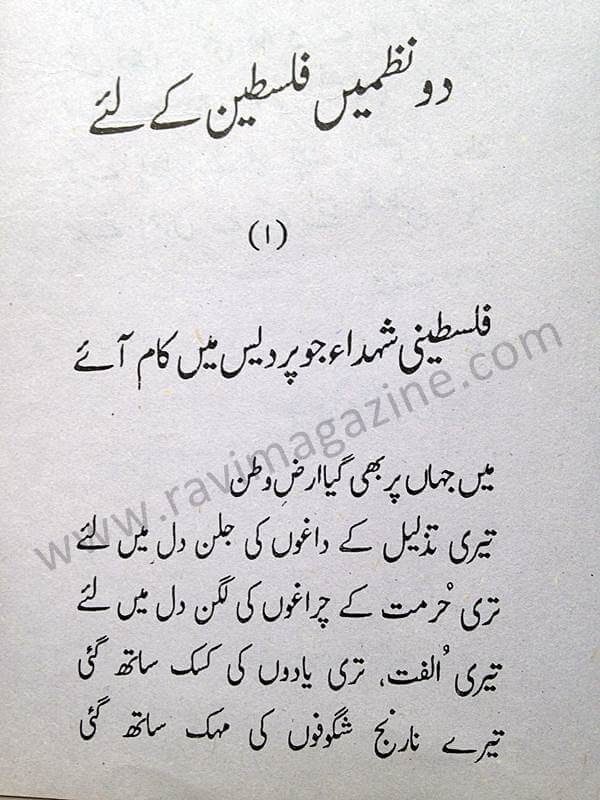 دو نظمیں فلسطین کے لئے
(۱)
فلسطینی شہداء جو پردیس میں کام آئے
www.ravimagazine.com
میں جہاں پر بھی گیا ارضِ وطن
تیری تذلیل کے داغوں کی جلن دل میں لئے
تری حُرمت کے چراغوں کی لگن دل میں لئے
تیری اُلفت، تری یادوں کی کسک ساتھ گئی
تیرے نارنج شگوفوں کی مہک ساتھ گئی